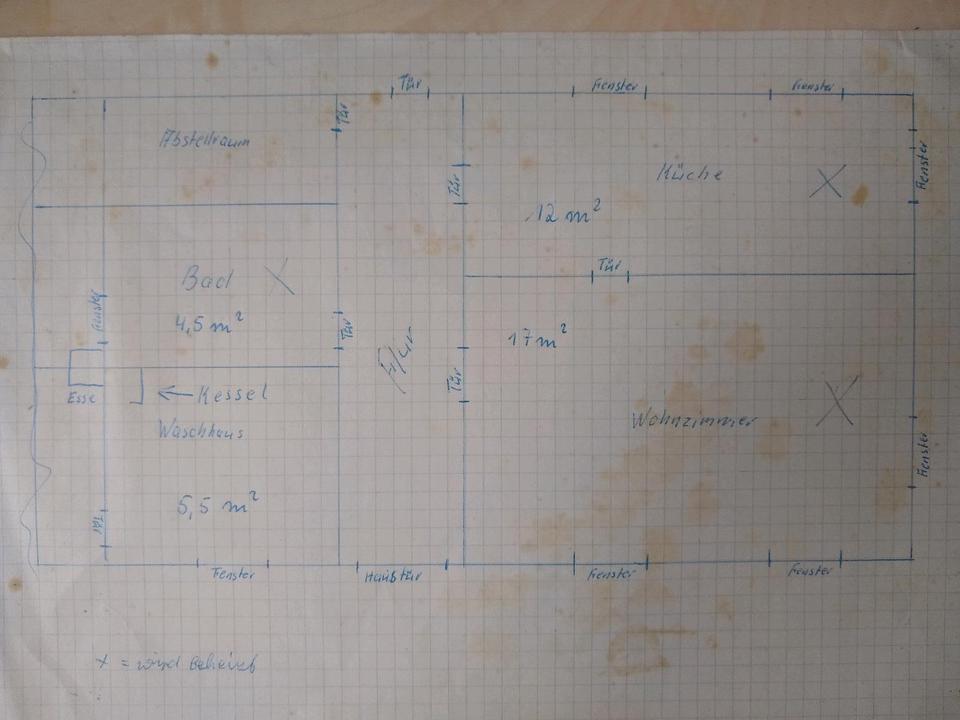 Tür
Fenster
Fenster
Tür
Abstellraum
Küche
X
Fenster
Tür
12 m²
Tür
Bad X
Fenster
4,5 m²
Tür
17 m²
Flur
Tür
Esse
← Kessel
Waschhaus
Wohnzimmer
X
Fenster
5,5 m²
Tür
Fenster
Haustür
Fenster
Fenster
X = wird beheizt